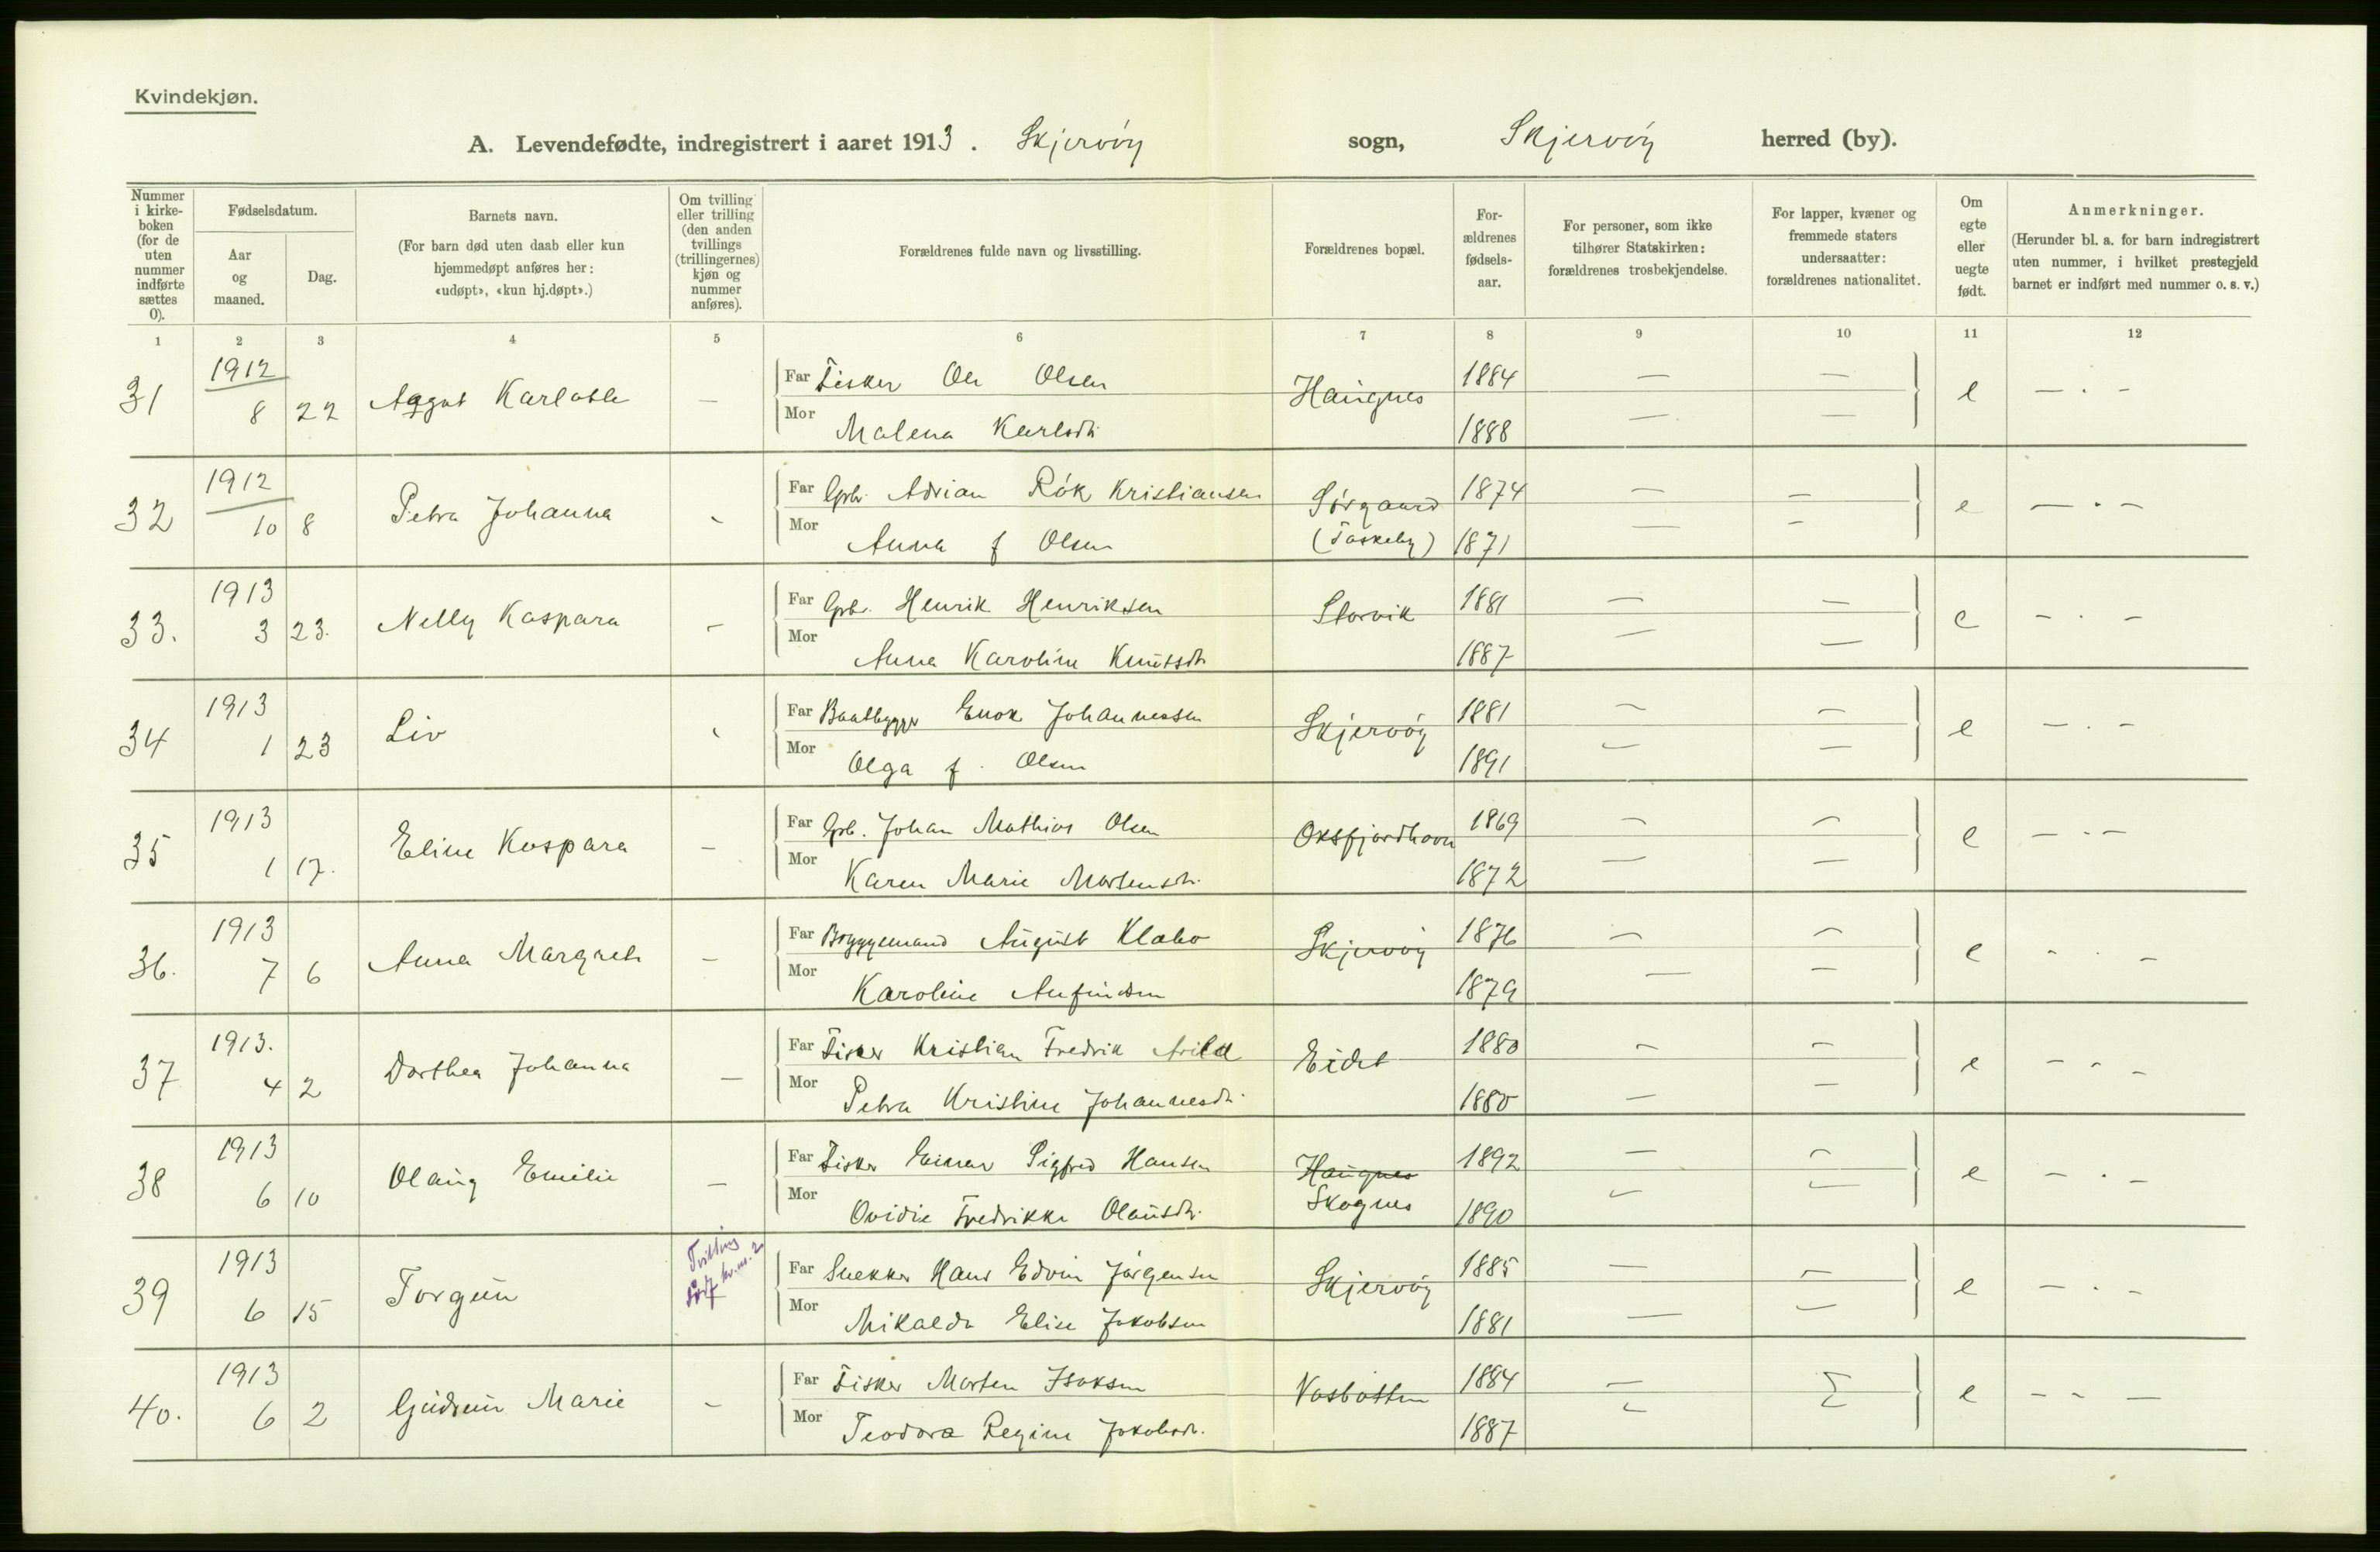 Kvindekjøn.
A. Levendefødte, indregistrert i aaret 1913. Skjervöy sogn, Skjervöy herred (by).
Nummer i kirke-boken (for de uten nummer indførte sættes 0).
Fødselsdatum.
Aar og maaned.
Dag.
Barnets navn.
(For barn død uten daab eller kun hjemmedøpt anføres her: «udøpt», «kun hj.døpt».)
Om tvilling eller trilling (den anden tvillings (trillingernes) kjøn og nummer anføres).
Forældrenes fulde navn og livsstilling.
Forældrenes bopæl.
For-ældrenes fødsels-aar.
For personer, som ikke tilhører Statskirken: forældrenes trosbekjendelse.
For lapper, kvæner og fremmede staters undersaatter: forældrenes nationalitet.
Om egte eller uegte født.
Anmerkninger.
(Herunder bl. a. for barn indregistrert uten nummer, i hvilket prestegjeld barnet er indført med nummer o. s. v.)
1 2 3 4 5 6 7 8 9 10 11 12
31 1912 8 22 Karlotte — Far Fisker Ole Olsen Haugnes 1884 — — e — . -
Mor Malena Karlsdtr 1888 — —
32 1912 10 8 Petra Johanna - Far Gbr. Adrian Rök Kristiansen Sörgaard 1874 — — e — . -
Mor Anna f Olsen (Taskeby) 1871 — —
33. 1913 3 23. Nelly Kaspara - Far Gbr. Henrik Henriksen Storvik 1881 — — e - . -
Mor Anna Karoline Knutsdtr 1887 — —
34 1913 1 23 Liv - Far Baatbygger Enok Johannessen Skjervöy 1881 — — e — . -
Mor Olga f. Olsen 1891 — —
35 1913 1 17. Eline Kaspara — Far Gbr. Johan Mathias Olsen Oksfjordhavn 1869 — — e — . —
Mor Karen Marie Mortensdtr. 1872 — —
36. 1913 7 6 Anna Margrete — Far Bryggemand August Klabo Skjervöy 1876 — — e - . -
Mor Karoline Anfindsen 1879 — —
37 1913. 4 2 Dorthea Johanna — Far Fisker Kristian Fredrik Arild Eidet 1880 — — e - - -
Mor Petra Kristine Johannesdtr. 1880 — —
38 1913 6 10 Olaug Emilie — Far Fisker Einar Sigfred Hansen Haugnes 1892 — — e — . -
Mor Ovidie Fredrikke Olausdtr. Skognes 1890 — —
39 1913 6 15 Torgun Tvilling kv. nr. 2 Far Snekker Hans Edvin Jörgensen Skjervöy 1885 — — e — . -
Mor Mikalda Elise Jakobsen 1881 — —
40. 1913 6 2 Gudrun Marie - Far Fisker Morten Isaksen Vasbotten 1884 — — e - - —
Mor Teodora Regine Jakobsdtr. 1887 — —